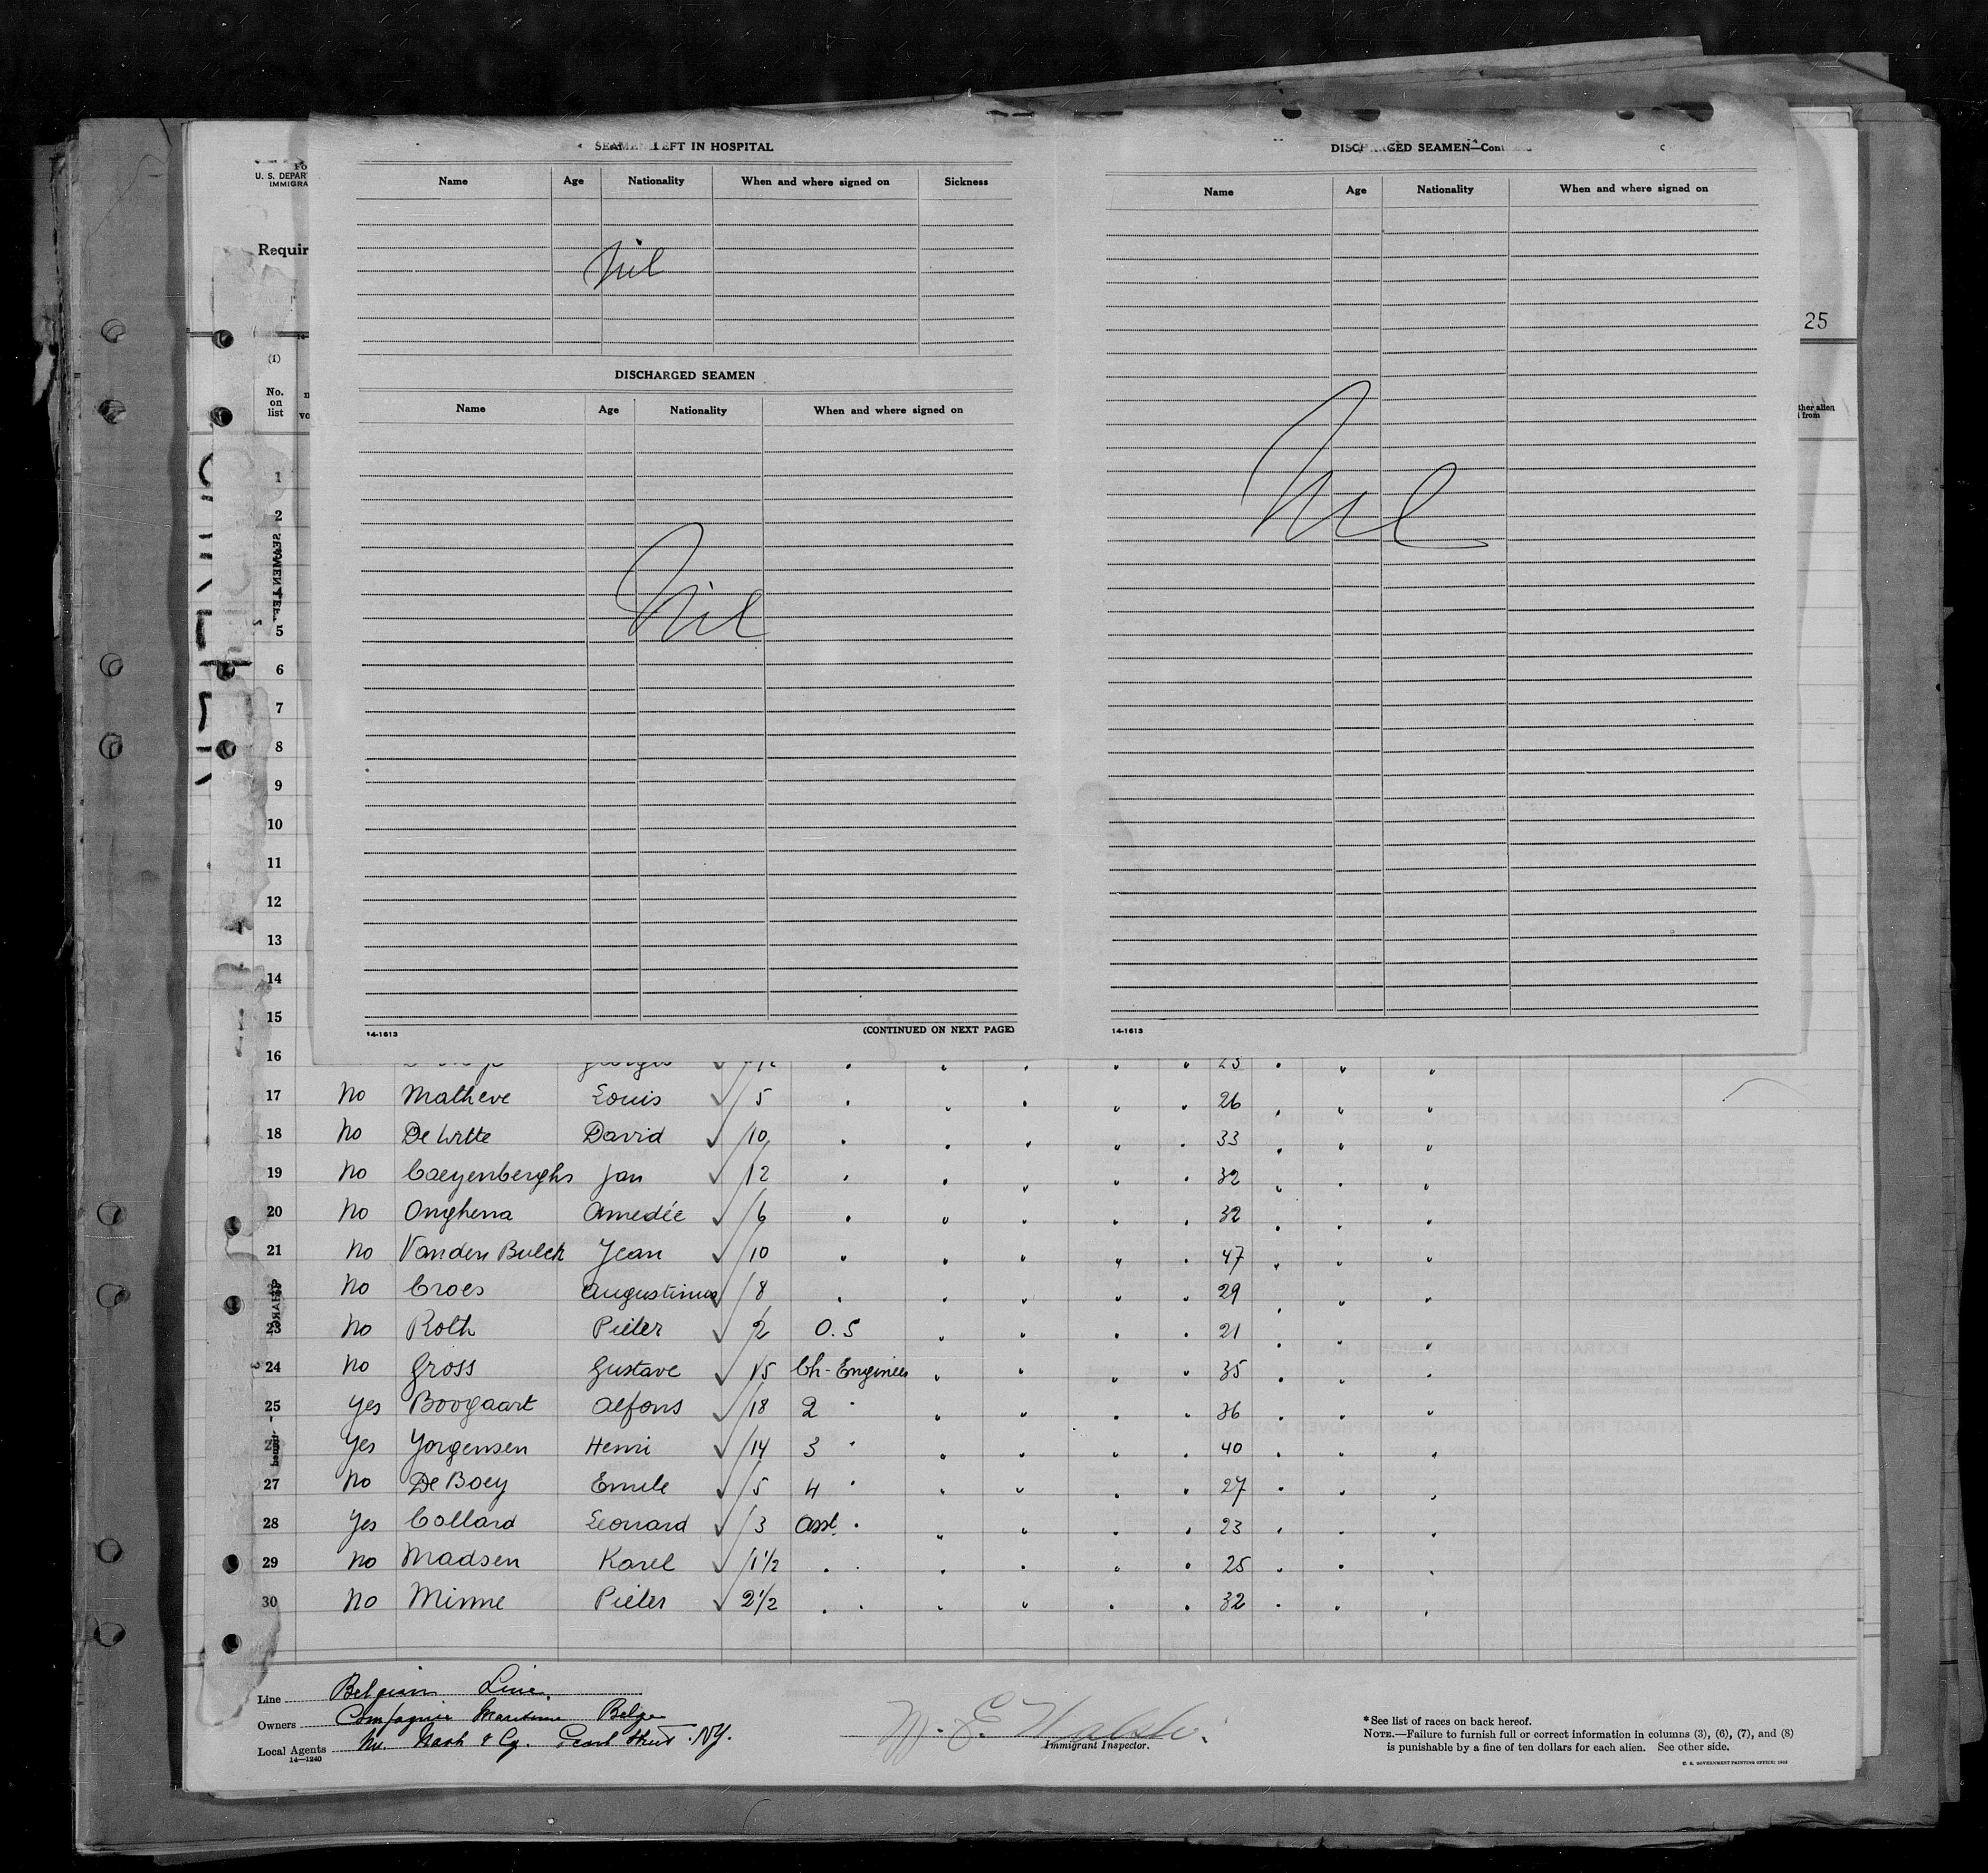 SEAMEN LEFT IN HOSPITAL
Name Age Nationality When and where signed on Sickness
Nil
DISCHARGED SEAMEN
Name Age Nationality When and where signed on
Nil
14-1613 (CONTINUED ON NEXT PAGE)
DISCHARGED SEAMEN—Con
Name Age Nationality When and where signed on
Nil
14-1613
U. S. DEPAR
IMMIGRA
Requir
25
(1)
No.
on
list
ther alien
from
1
2
5
6
7
8
9
10
11
12
13
14
15
16 Georges 23
17 No Matheve Louis ✓ 5 " " " " " 26 " " "
18 No De Witte David ✓ 10 " " " " " 33 " " "
19 No Caeyenberghs Jan ✓ 12 " " " " " 32 " " "
20 No Onghena Amedée ✓ 6 " " " " " 32 " " "
21 No Vanden Bulck Jean ✓ 10 " " " " " 47 " " "
No Croes Augustinus ✓ 8 " " " " " 29 " " "
23 No Roth Pieter ✓ 2 O.S " " " " 21 " " "
24 No Gross Gustave ✓ 15 Ch-Engineer " " " " 35 " " "
25 Yes Boogaart Alfons ✓ 18 2 " " " " " 36 " " "
Yes Yorgensen Henri ✓ 14 3 " " " " " 40 " " "
27 No De Boey Emile ✓ 5 4 " " " " " 27 " " "
28 Yes Collard Leonard ✓ 3 Asst. " " " " " 23 " " "
29 No Madsen Karel ✓ 1½ " " " " " " 25 " " "
30 No Minne Pieter ✓ 2½ " " " " " " 32 " " "
Line Belgian Line.
Owners Compagnie Maritime Belge
Local Agents Nash & Cy. Pearl Street. NY.
14—1240
Immigrant Inspector.
*See list of races on back hereof.
NOTE.—Failure to furnish full or correct information in columns (3), (6), (7), and (8)
is punishable by a fine of ten dollars for each alien. See other side.